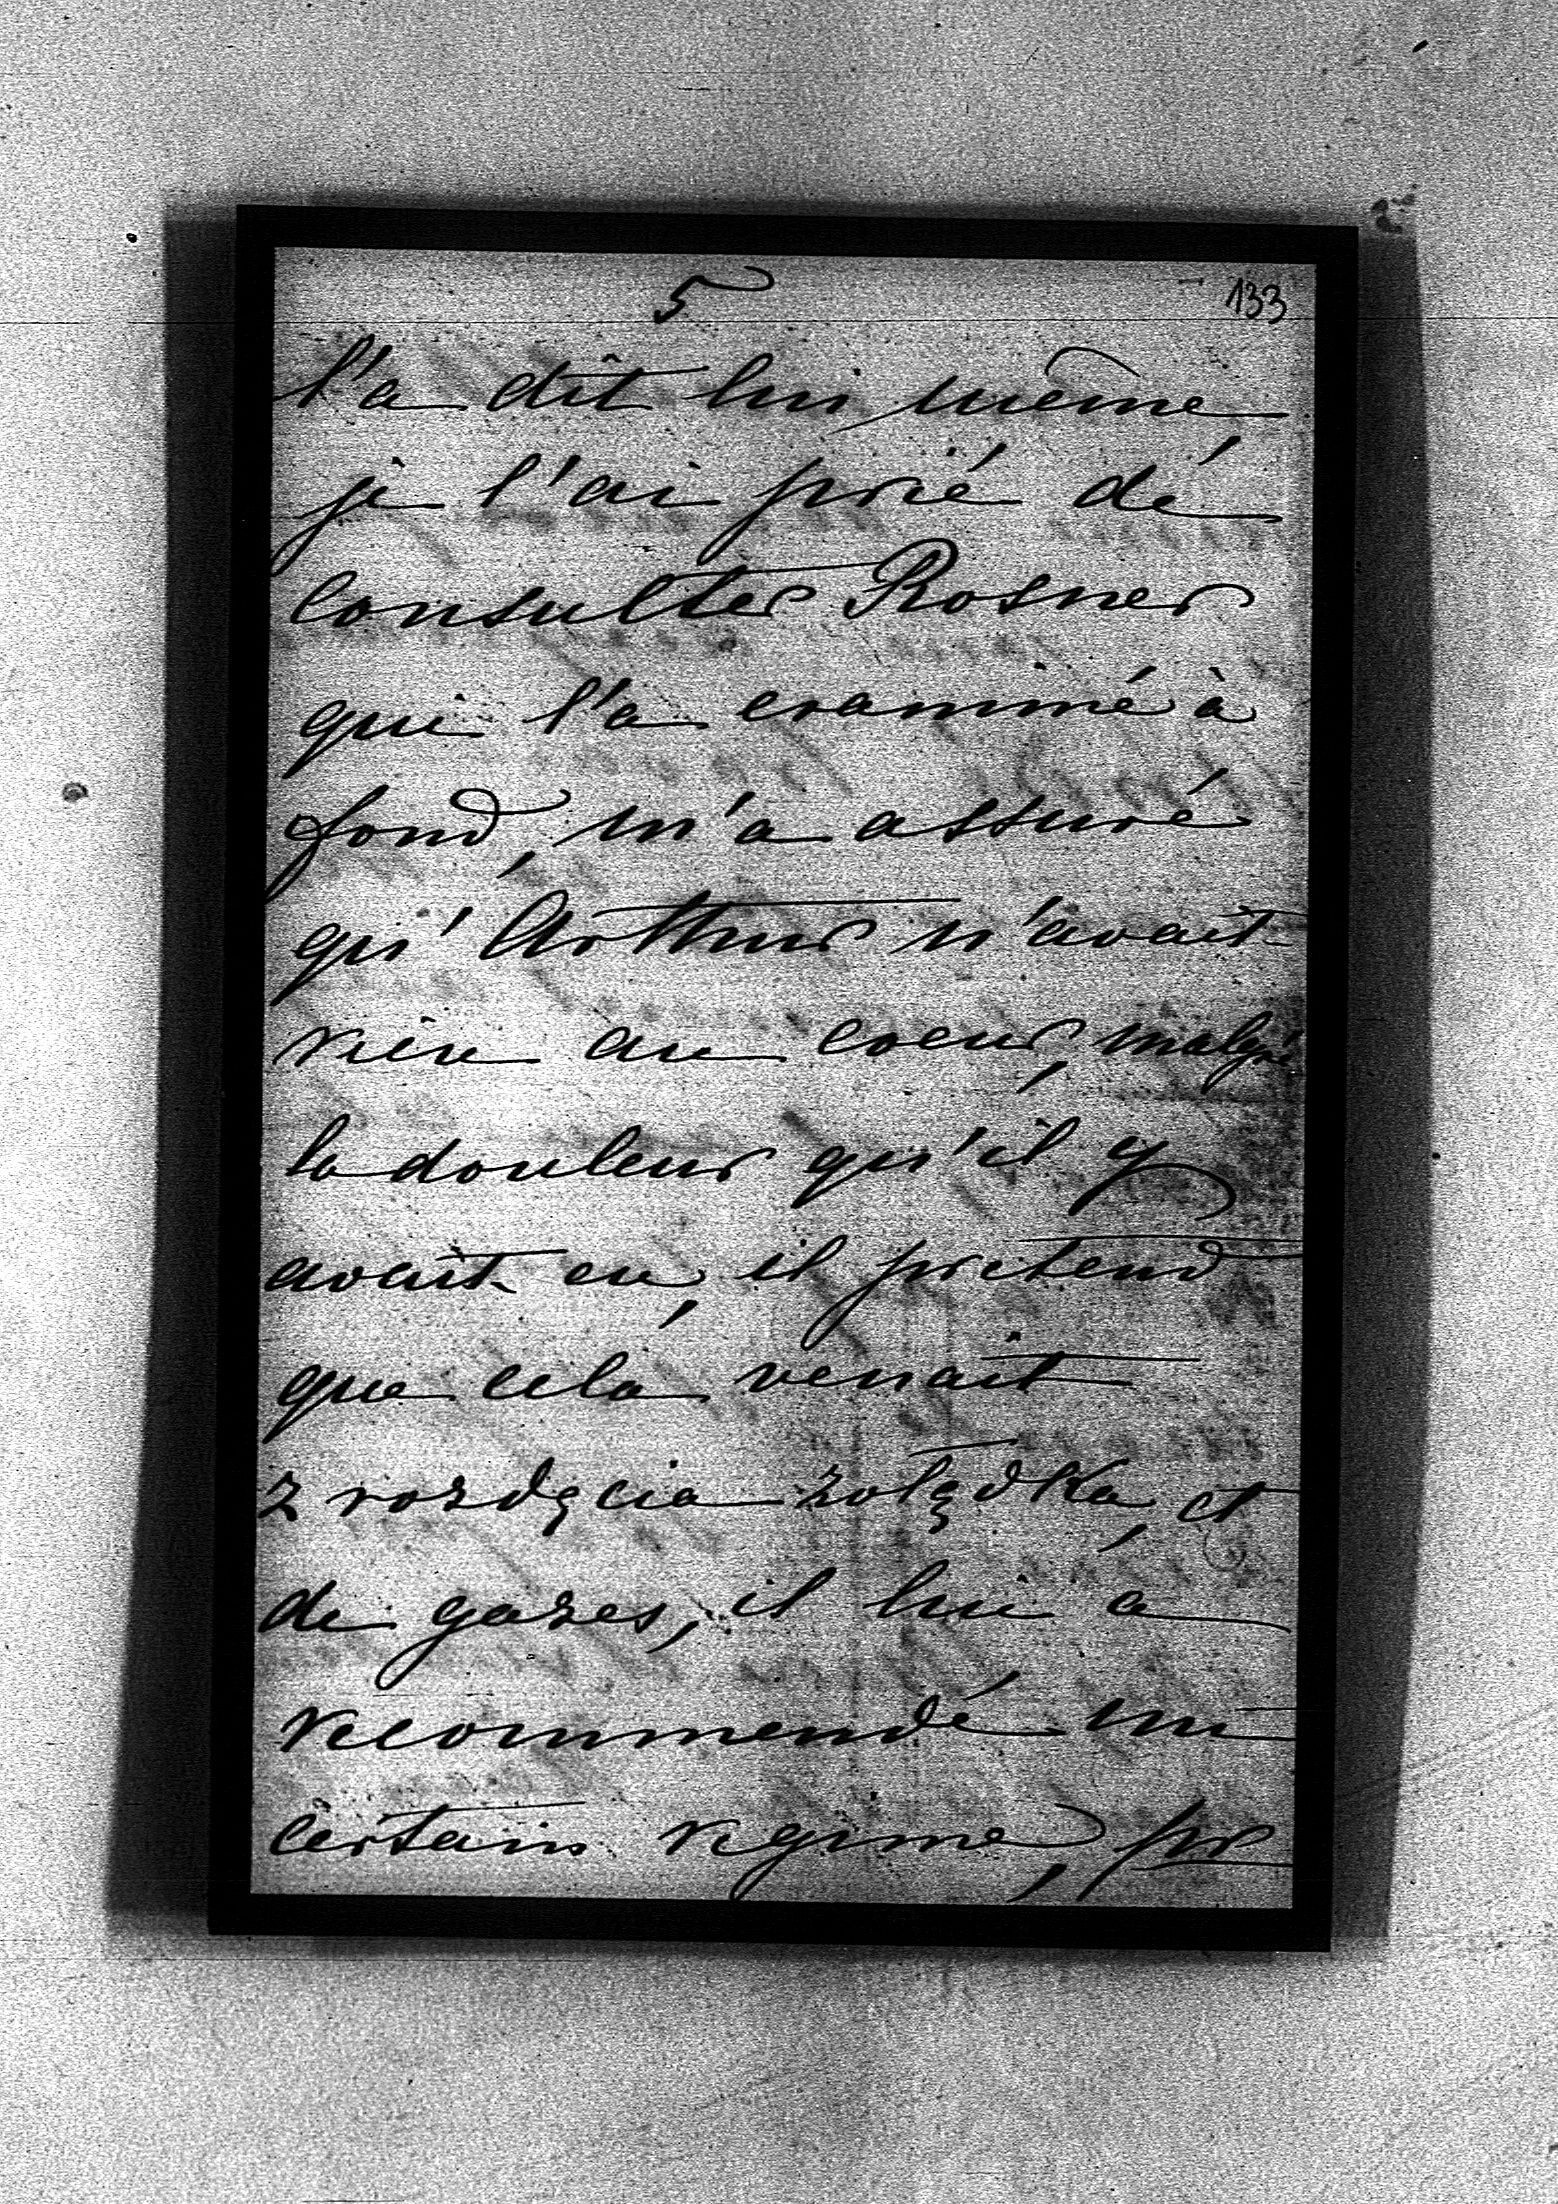 5
133
l'a dît lui même
je l'ai prié dé
consulter Rosner
qui l'a examiné à
fond, m'a assuré
qu'Arthur n'avait
rien au coeur, malgré
la douleur qu'il y
avait eu, il pretend
que cela venait
z rozdęcia żołądka, et
de gazes, il lui a
recommendé un
certain regime, pr